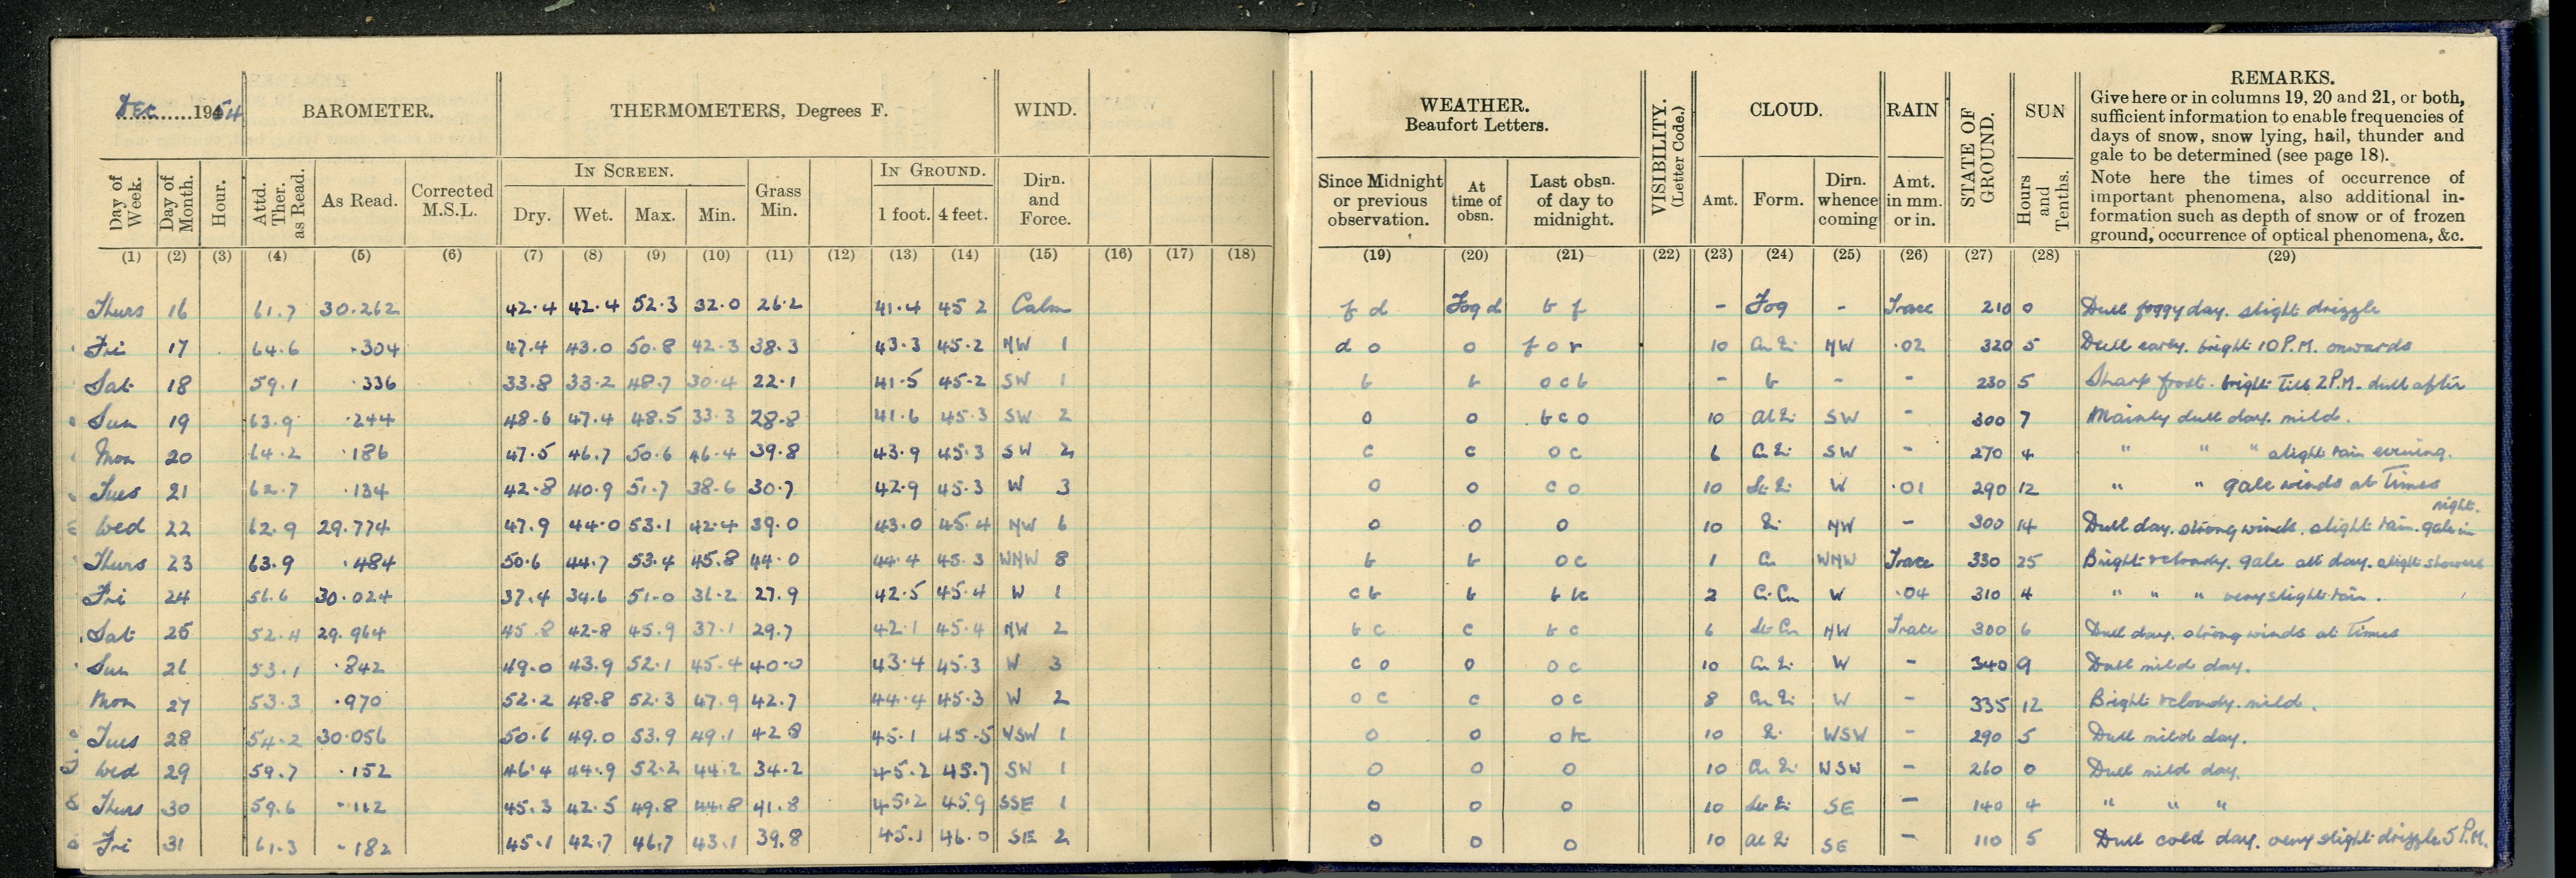 DEC. 1954 BAROMETER. THERMOMETERS, Degrees F. WIND.
IN SCREEN. IN GROUND.
Day of Week. Day of Month. Hour. Attd. Ther. as Read. As Read. Corrected M.S.L. Dry. Wet. Max. Min. Grass Min. 1 foot. 4 feet. Dirn. and Force.
(1) (2) (3) (4) (5) (6) (7) (8) (9) (10) (11) (12) (13) (14) (15) (16) (17) (18)
Thurs 16 61.7 30.262 42.4 42.4 52.3 32.0 26.2 41.4 45 2 Calm
Fri 17 64.6 .304 47.4 43.0 50.8 42.3 38.3 43.3 45.2 NW 1
Sat 18 59.1 .336 33.8 33.2 48.7 30.4 22.1 41.5 45.2 SW 1
Sun 19 63.9 .244 48.6 47.4 48.5 33.3 28.8 41.6 45.3 SW 2
Mon 20 64.2 .186 47.5 46.7 50.6 46.4 39.8 43.9 45.3 SW 2
Tues 21 62.7 .134 42.8 40.9 51.7 38.6 30.7 42.9 45.3 W 3
Wed 22 62.9 29.774 47.9 44.0 53.1 42.4 39.0 43.0 45.4 NW 6
Thurs 23 63.9 .484 50.6 44.7 53.4 45.8 44.0 44.4 45.3 WNW 8
Fri 24 30.024 37.4 34.6 51.0 27.9 42.5 45.4 W 1
Sat 25 52.4 29.964 45.8 42.8 45.9 37.1 29.7 42.1 45.4 NW 2
Sun 26 53.1 .842 49.0 43.9 52.1 45.4 40.0 43.4 45.3 W 3
Mon 27 53.3 .970 52.2 48.8 52.3 47.9 42.7 44.4 45.3 W 2
Tues 28 54.2 30.056 50.6 49.0 53.9 49.1 42 8 45.1 45.5 WSW 1
Wed 29 59.7 .152 46.4 44.9 52.2 44.2 34.2 45.2 45.7 SW 1
Thurs 30 59.6 .112 45.3 42.5 49.8 44.8 41.8 45.2 45.9 SSE 1
Fri 31 61.3 .182 45.1 42.7 46.7 43.1 39.8 45.1 46.0 SE 2
WEATHER. Beaufort Letters. VISIBILITY. (Letter Code.) CLOUD. RAIN STATE OF GROUND. SUN REMARKS.
Give here or in columns 19, 20 and 21, or both,
sufficient information to enable frequencies of
days of snow, snow lying, hail, thunder and
gale to be determined (see page 18).
Note here the times of occurrence of
important phenomena, also additional in-
formation such as depth of snow or of frozen
ground, occurrence of optical phenomena, &c.
Since Midnight or previous observation. At time of obsn. Last obsn. of day to midnight. Amt. Form. Dirn. whence coming Amt. in mm. or in. Hours and Tenths.
(19) (20) (21) (22) (23) (24) (25) (26) (27) (28) (29)
f d Fog d b f - Fog - Trace 210 0 Dull foggy day. slight drizzle
d o o f o r 10 NW .02 320 5 Dull early. bright 10 P.M. onwards
b b o c b - b - - 230 5 Sharp frost. bright Till 2 P.M. dull after
o o b c o 10 SW - 300 7 Mainly dull day. mild.
c c o c 6 SW - 270 4 " " " slight rain evening.
o o c o 10 W .01 290 12 " " gale winds at Times
o o o 10 NW - 300 14 Dull day. strong winds. slight rain. gale in night.
b b o c 1 Cu WNW Trace 330 25 Bright & cloudy. gale all day. slight showers
c b b 2 W .04 310 4 " " " very slight rain.
b c c b c 6 NW Trace 300 6 Dull day. strong winds at Times
c o o o c 10 W - 340 9 Dull mild day.
o c c o c 8 W - 335 12 Bright & cloudy. mild.
o o 10 WSW - 290 5 Dull mild day.
o o o 10 WSW - 260 0 Dull mild day.
o o o 10 SE - 140 4 " " "
o o o 10 SE - 110 5 Dull cold day. very slight drizzle 5 P.M.